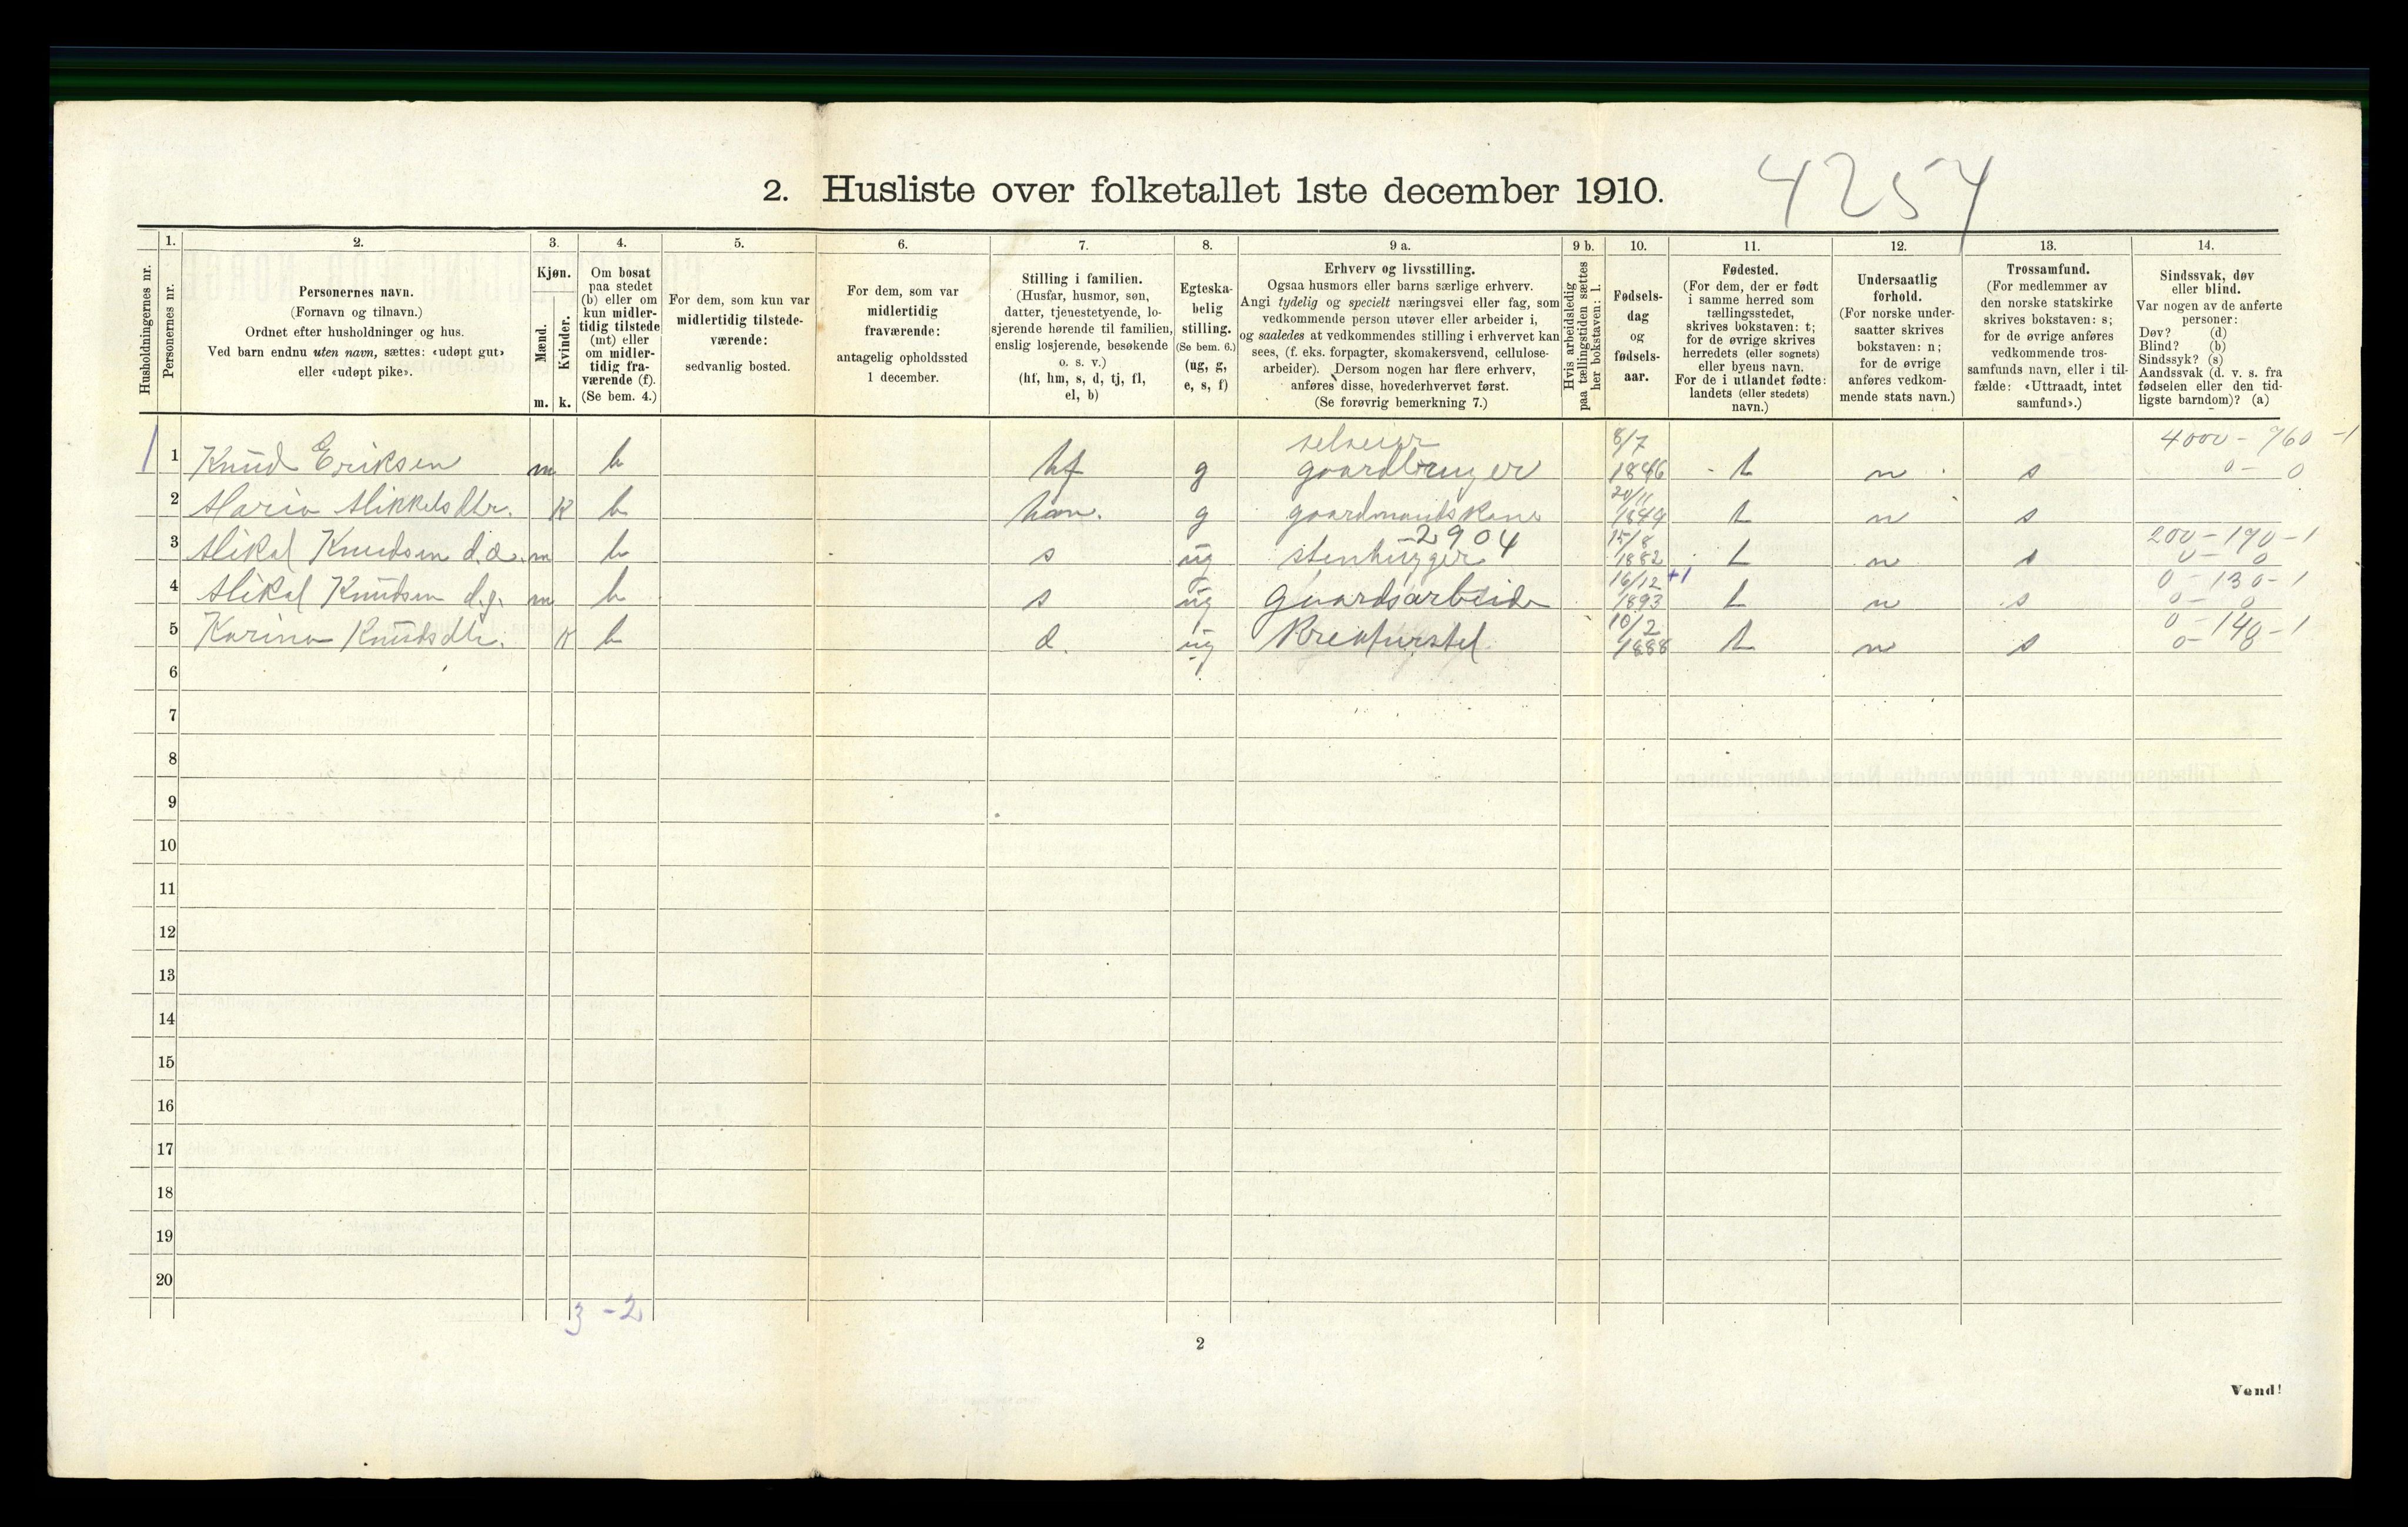 2. Husliste over folketallet 1ste december 1910. 4254
Husholdningernes nr.
1.
Personernes nr.
2.
Personernes navn.
(Fornavn og tilnavn.)
Ordnet efter husholdninger og hus.
Ved barn endnu uten navn, sættes: «udøpt gut»
eller «udøpt pike».
3.
Kjøn.
Mænd.
Kvinder.
m. k.
4.
Om bosat
paa stedet
(b) eller om
kun midler-
tidig tilstede
(mt) eller
om midler-
tidig fra-
værende (f).
(Se bem. 4.)
5.
For dem, som kun var
midlertidig tilstede-
værende:
sedvanlig bosted.
6.
For dem, som var
midlertidig
fraværende:
antagelig opholdssted
1 december.
7.
Stilling i familien.
(Husfar, husmor, søn,
datter, tjenestetyende, lo-
sjerende hørende til familien,
enslig losjerende, besøkende
o. s. v.)
(hf, hm, s, d, tj, fl,
el, b)
8.
Egteska-
belig
stilling.
(Se bem. 6.)
(ug, g,
e, s, f)
9 a.
Erhverv og livsstilling.
Ogsaa husmors eller barns særlige erhverv.
Angi tydelig og specielt næringsvei eller fag, som
vedkommende person utøver eller arbeider i,
og saaledes at vedkommendes stilling i erhvervet kan
sees, (f. eks. forpagter, skomakersvend, cellulose-
arbeider). Dersom nogen har flere erhverv,
anføres disse, hovederhvervet først.
(Se forøvrig bemerkning 7.)
9 b.
Hvis arbeidsledig
paa tællingstiden sættes
her bokstaven: l.
10.
Fødsels-
dag
og
fødsels-
aar.
11.
Fødested.
(For dem, der er født
i samme herred som
tællingsstedet,
skrives bokstaven: t;
for de øvrige skrives
herredets (eller sognets)
eller byens navn.
For de i utlandet fødte:
landets (eller stedets)
navn.)
12.
Undersaatlig
forhold.
(For norske under-
saatter skrives
bokstaven: n;
for de øvrige
anføres vedkom-
mende stats navn.)
13.
Trossamfund.
(For medlemmer av
den norske statskirke
skrives bokstaven: s;
for de øvrige anføres
vedkommende tros-
samfunds navn, eller i til-
fælde: «Uttraadt, intet
samfund».)
14.
Sindssvak, døv
eller blind.
Var nogen av de anførte
personer:
Døv? (d)
Blind? (b)
Sindssyk? (s)
Aandssvak (d. v. s. fra
fødselen eller den tid-
ligste barndom)? (a)
selveier 8/7 4000 - 760 -1
1 1 Knud Eriksen m b hf g gaardbruger 1846 t n s 0 - 0
20/11
2 Maria Mikkelsdtr. K b hm. g gaardmandskone 1849 t n s
-2904 15/8 200 - 190 -1
3 Mikal Knudsen d.æ. m b s ug stenhugger 1882 t n s 0 - 0
16/12 +1 0 - 130 -1
4 Mikal Knudsen d.y. m b s ug gaardsarbeide 1893 t n s 0 - 0
10/2 0 - 140 -1
5 Karina Knudsdtr. K b d. ug Kreaturstel 1888 t n s 0 -
6
7
8
9
10
11
12
13
14
15
16
17
18
19
20
3 - 2
2
Vend!